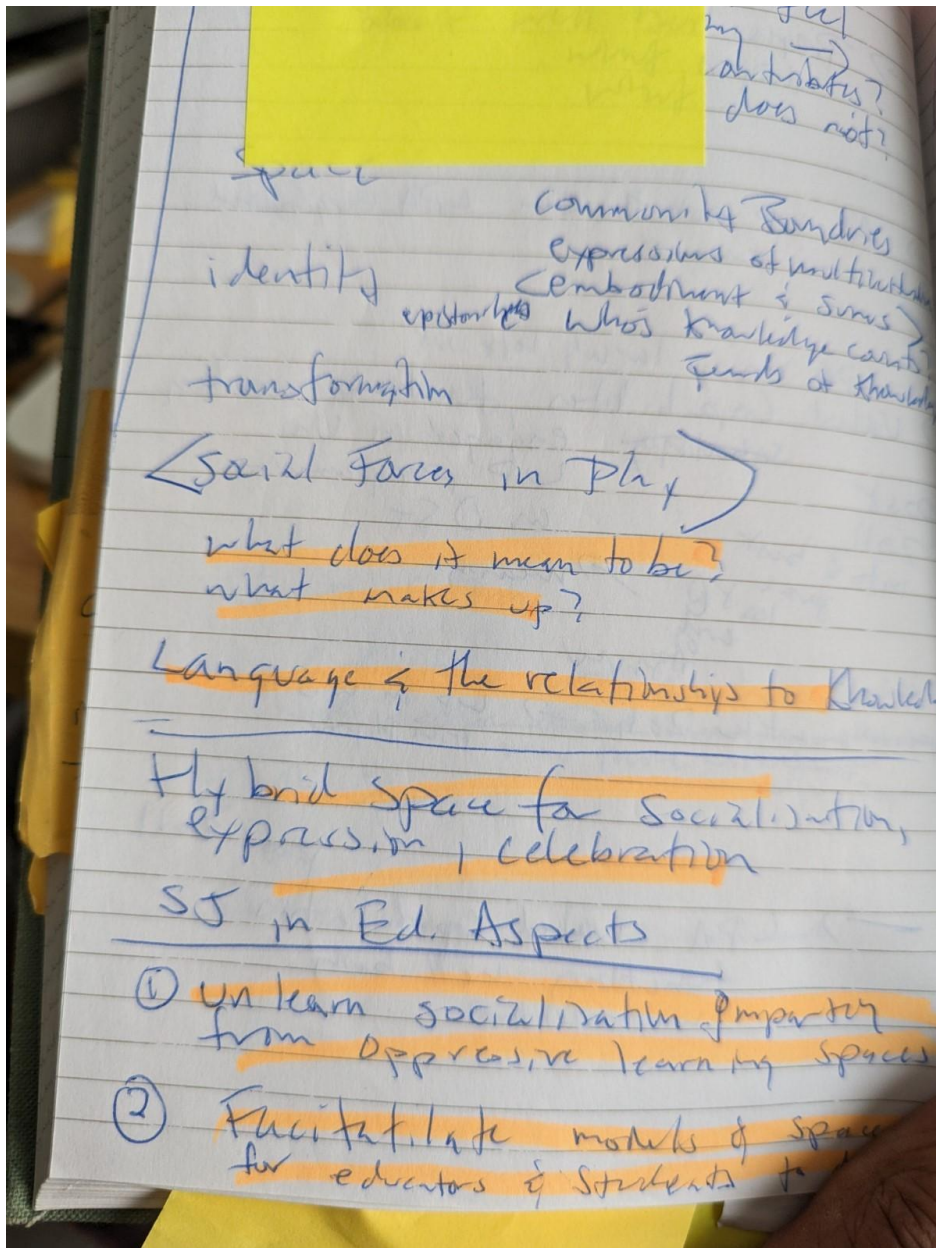 contributes?
does not?
space
community Boundries
expressions of
identity
<embodiment &
who's knowledge counts
transformation
Funds of
<Social Forces in Play>
what does it mean to be?
what makes up?
Language & the relationships to
Hybrid space for socialization,
expression, celebration
SJ in Ed. Aspects
① unlearn socialization
from oppressive learning spaces
② Facitatilate models of space
for educators & students to